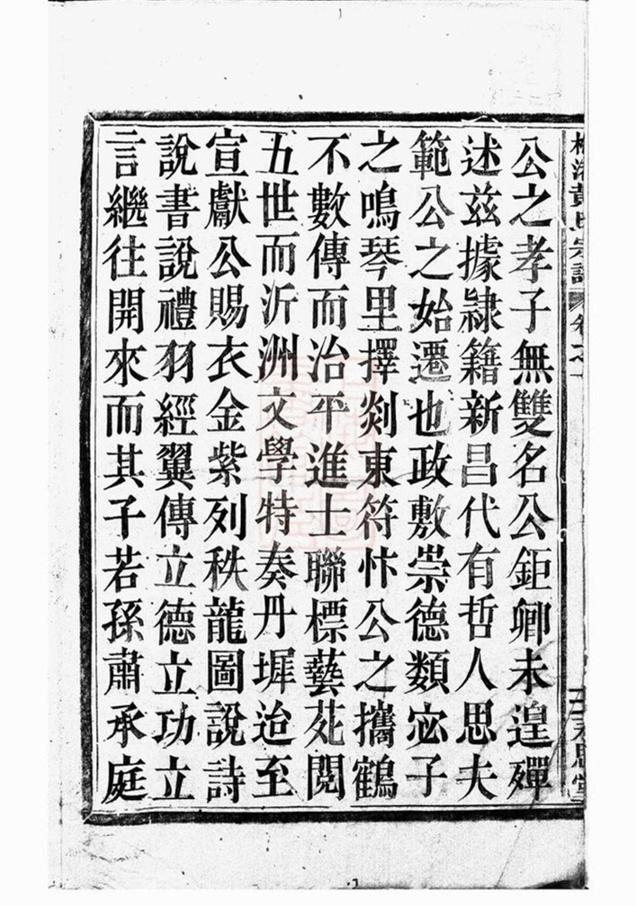 公之孝子無雙名公鉅卿未遑殫
述茲據隷籍新昌代有哲人思夫
範公之始遷也政敷崇德類宓子
之鳴琴里擇剡東符忭公之攜鶴
不數傳而治平進士聯標藝苑閱
五世而沂洲文學特奏丹墀迨至
宣獻公賜衣金紫列秩龍圖說詩
說書說禮羽經翼傳立德立功立
言繼往開來而其子若孫肅承庭